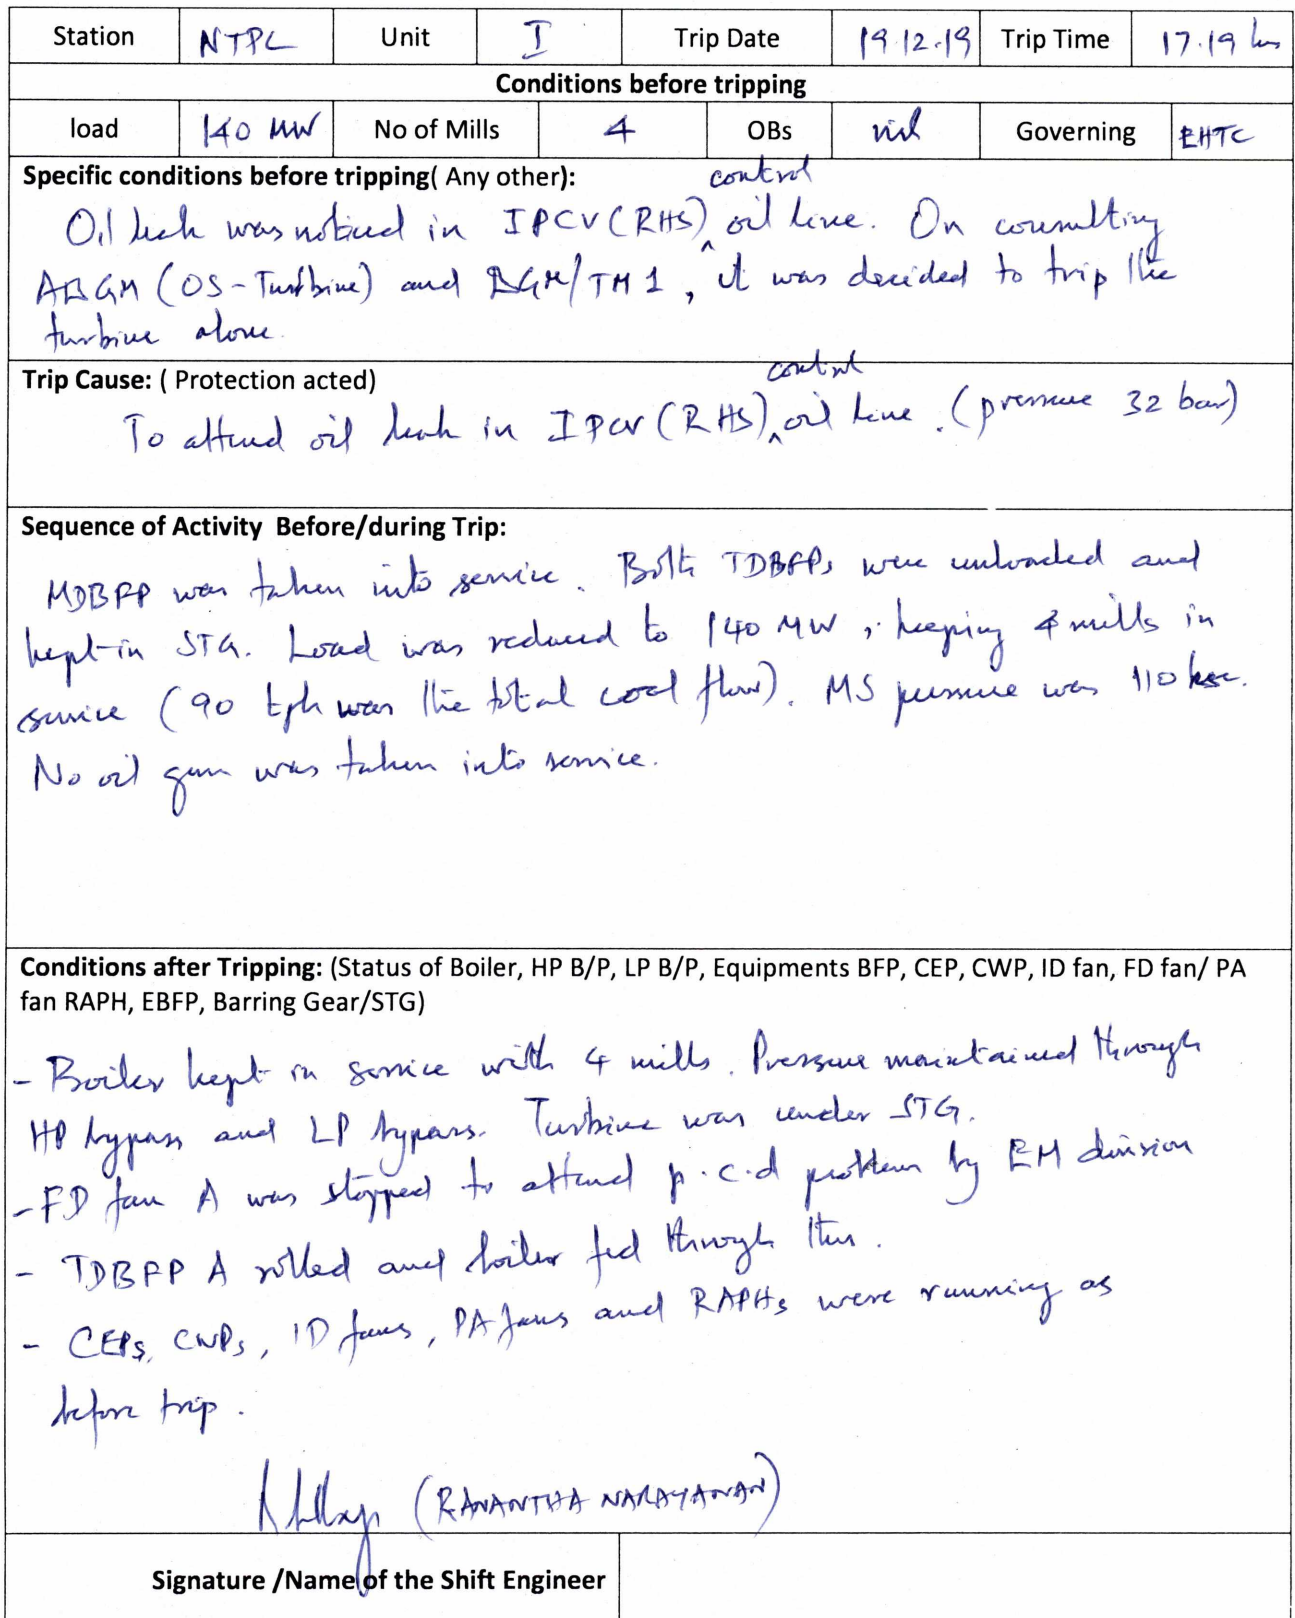 Station NTPL Unit I Trip Date 19.12.19 Trip Time 17.19 hrs
Conditions before tripping
load 140 MW No of Mills 4 OBs nil Governing EHTC
Specific conditions before tripping( Any other):
Oil leak was noticed in IPCV (RHS) control oil line. On consulting
AGM (OS-Turbine) and DGM/TM1, it was decided to trip the
turbine alone.
Trip Cause: ( Protection acted)
To attend oil leak in IPCV (RHS) control oil line. (pressure 32 bar)
Sequence of Activity Before/during Trip:
MDBFP was taken into service. Both TDBFPs were unloaded and
kept in STG. Load was reduced to 140 MW, keeping 4 mills in
service (90 tph was the total coal flow). MS pressure was 110 ksc.
No oil gun was taken into service.
Conditions after Tripping: (Status of Boiler, HP B/P, LP B/P, Equipments BFP, CEP, CWP, ID fan, FD fan/ PA
fan RAPH, EBFP, Barring Gear/STG)
- Boiler kept in service with 4 mills. Pressure maintained through
HP bypass and LP bypass. Turbine was under STG.
- FD fan A was stopped to attend p.c.d problem by EM division
- TDBFP A rolled and boiler fed through this.
- CEPs, CWPs, ID fans, PA fans and RAPHs were running as
before trip.
(RAVANTHA NARAYANAN)
Signature /Name of the Shift Engineer